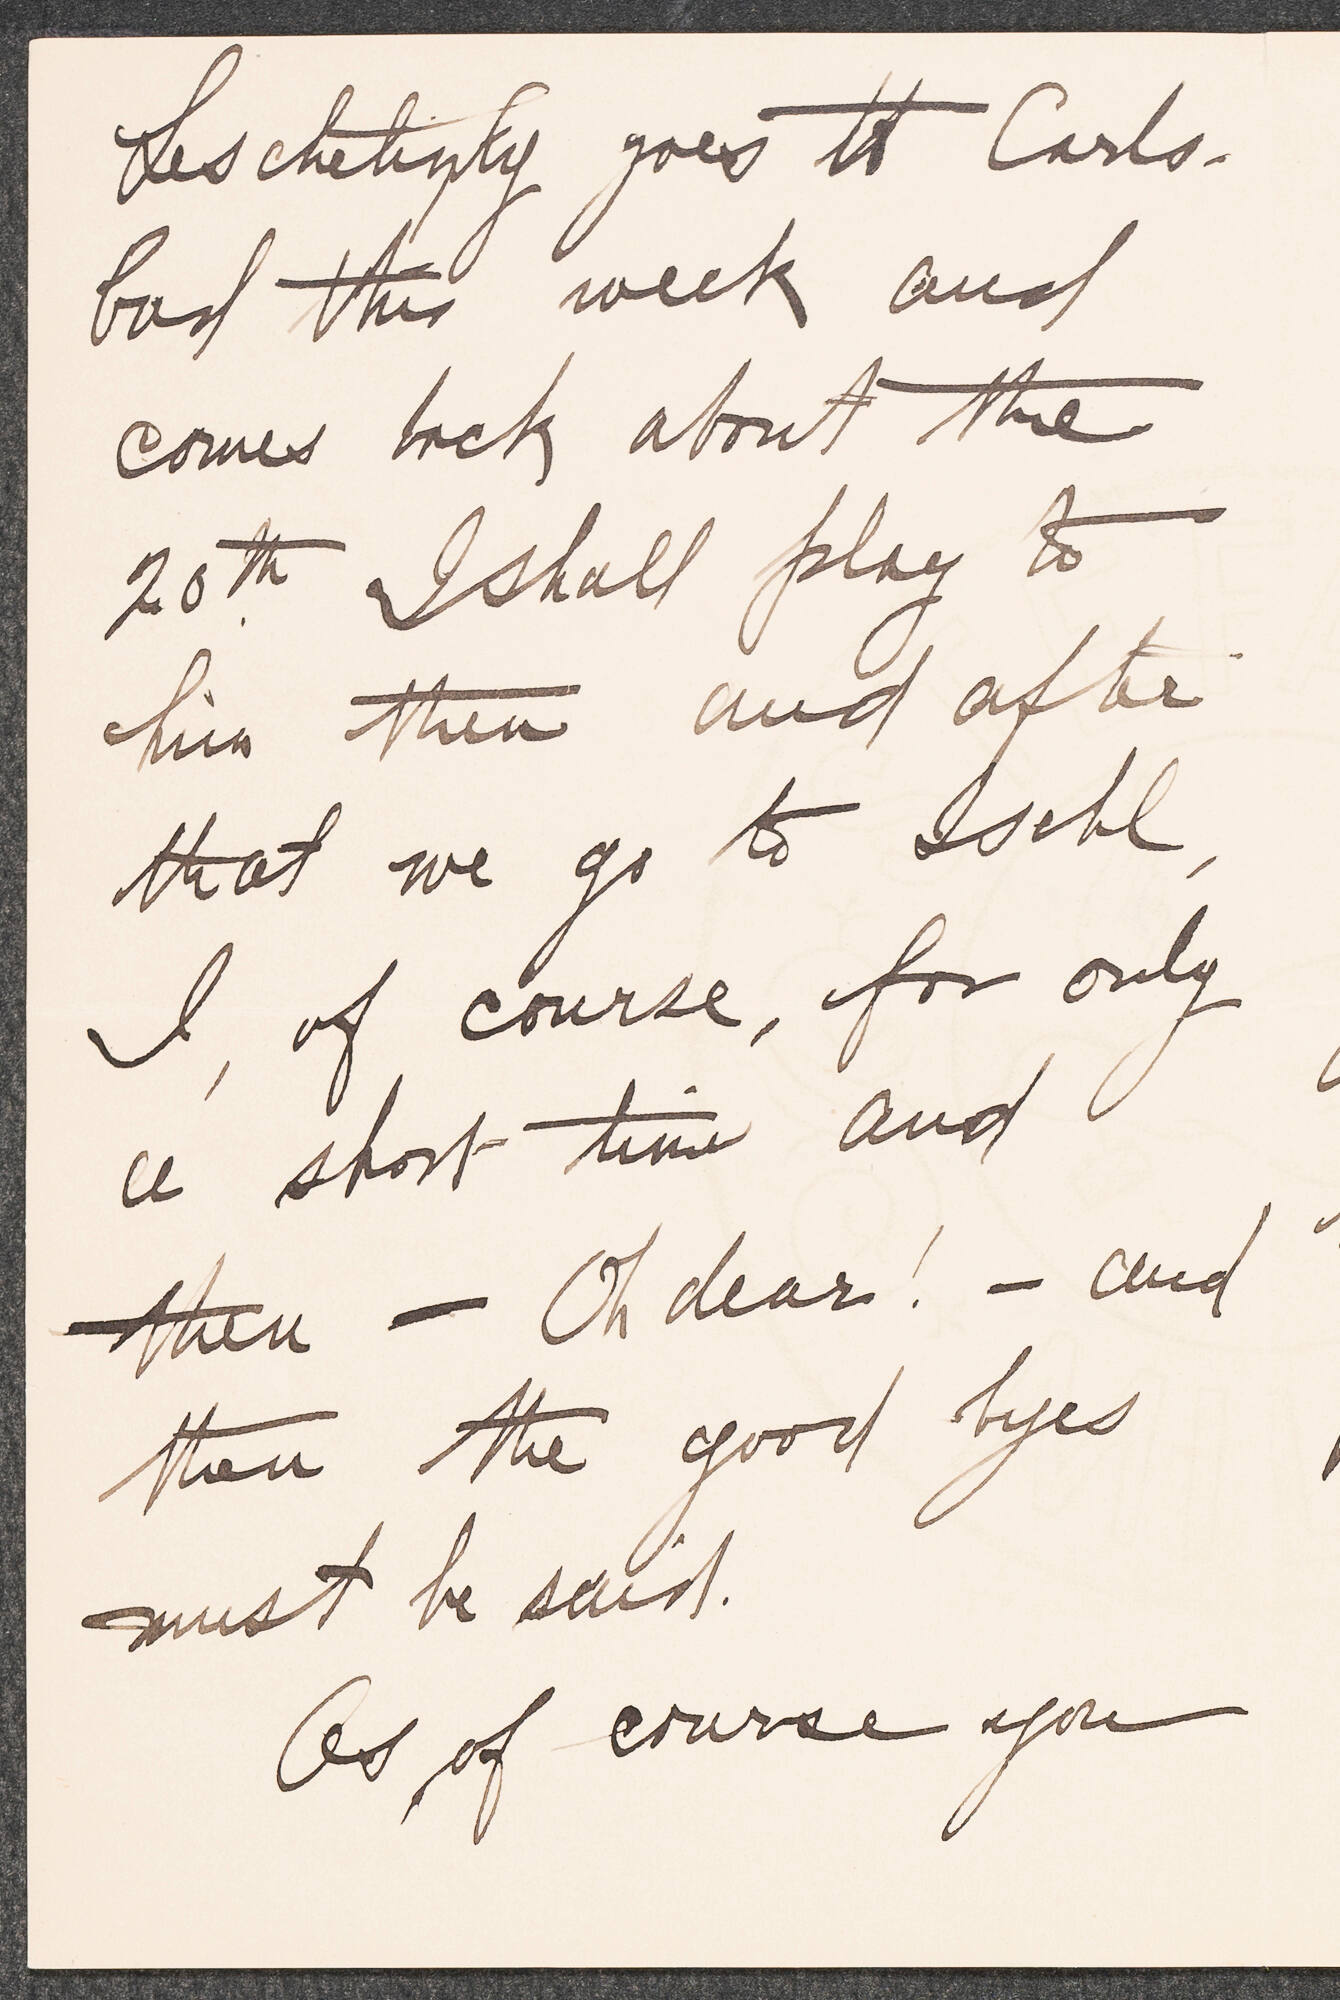 Leschetizky goes to Carls-
bad this week and
comes back about the
20th. I shall play to
him then and after
that we go to Ischl,
I, of course, for only
a short time and
then — Oh dear! — and
then the good byes
must be said.
As, of course you